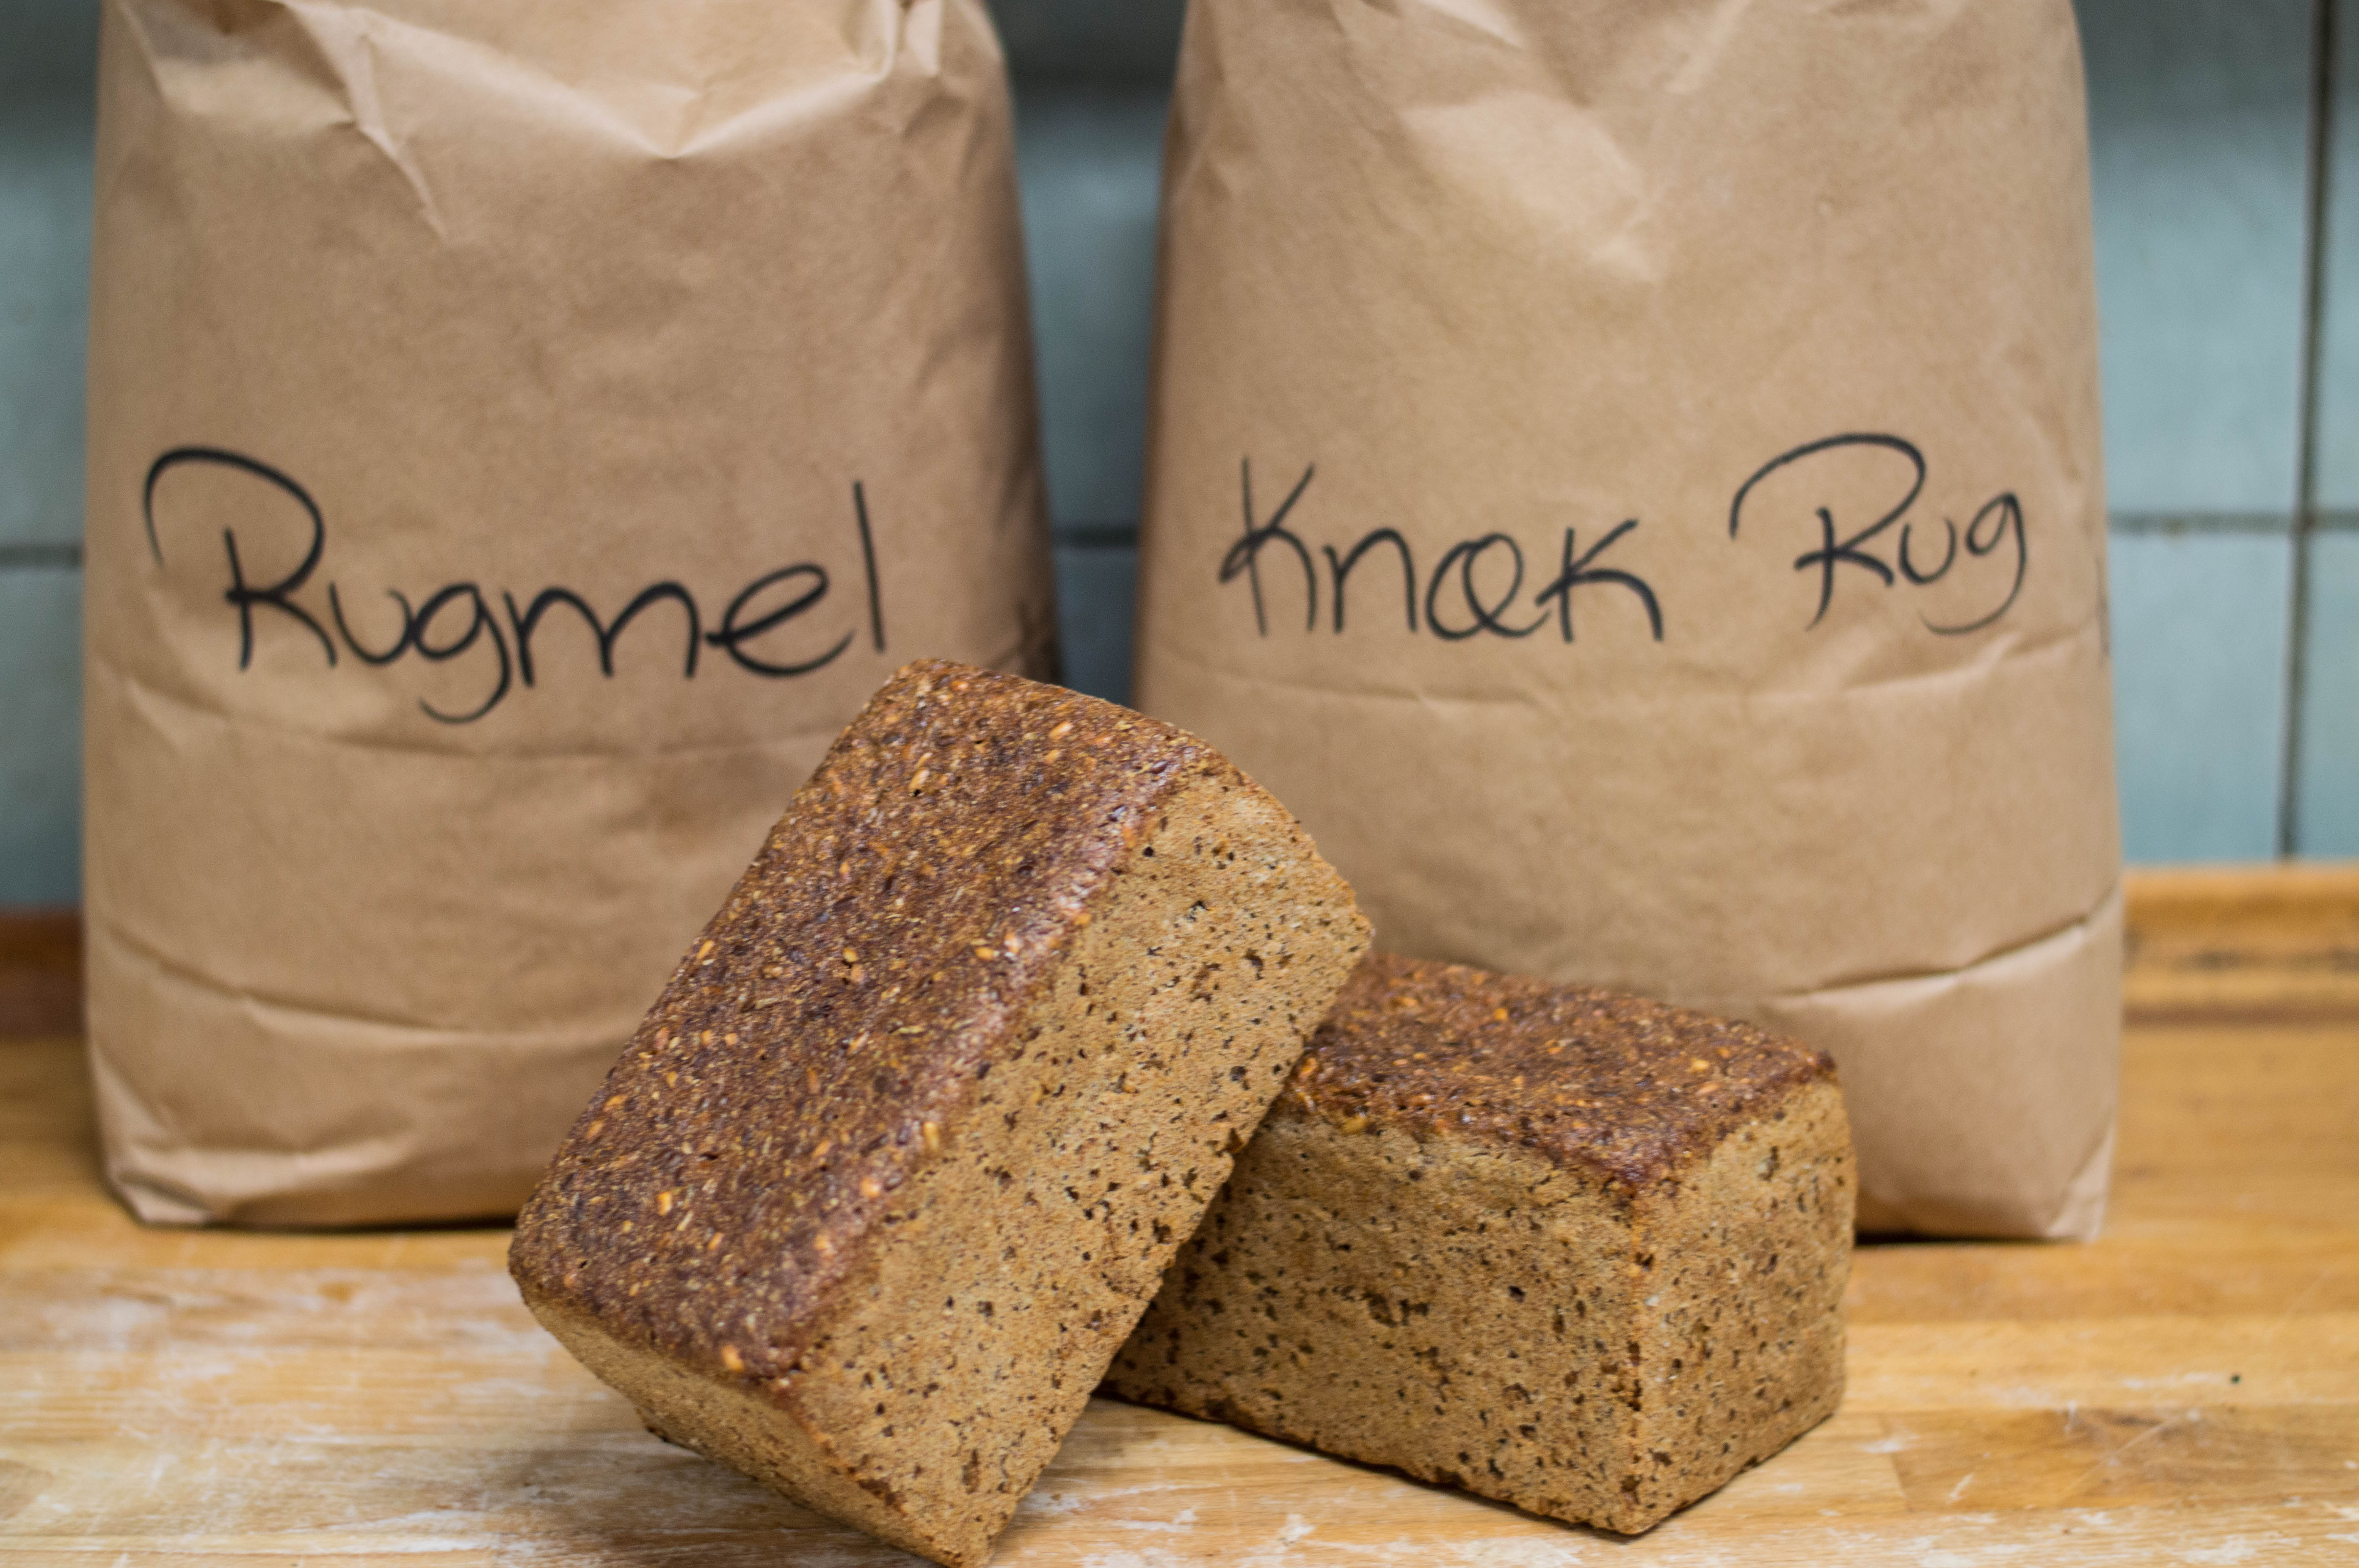 Rugmel
Knæk Rug